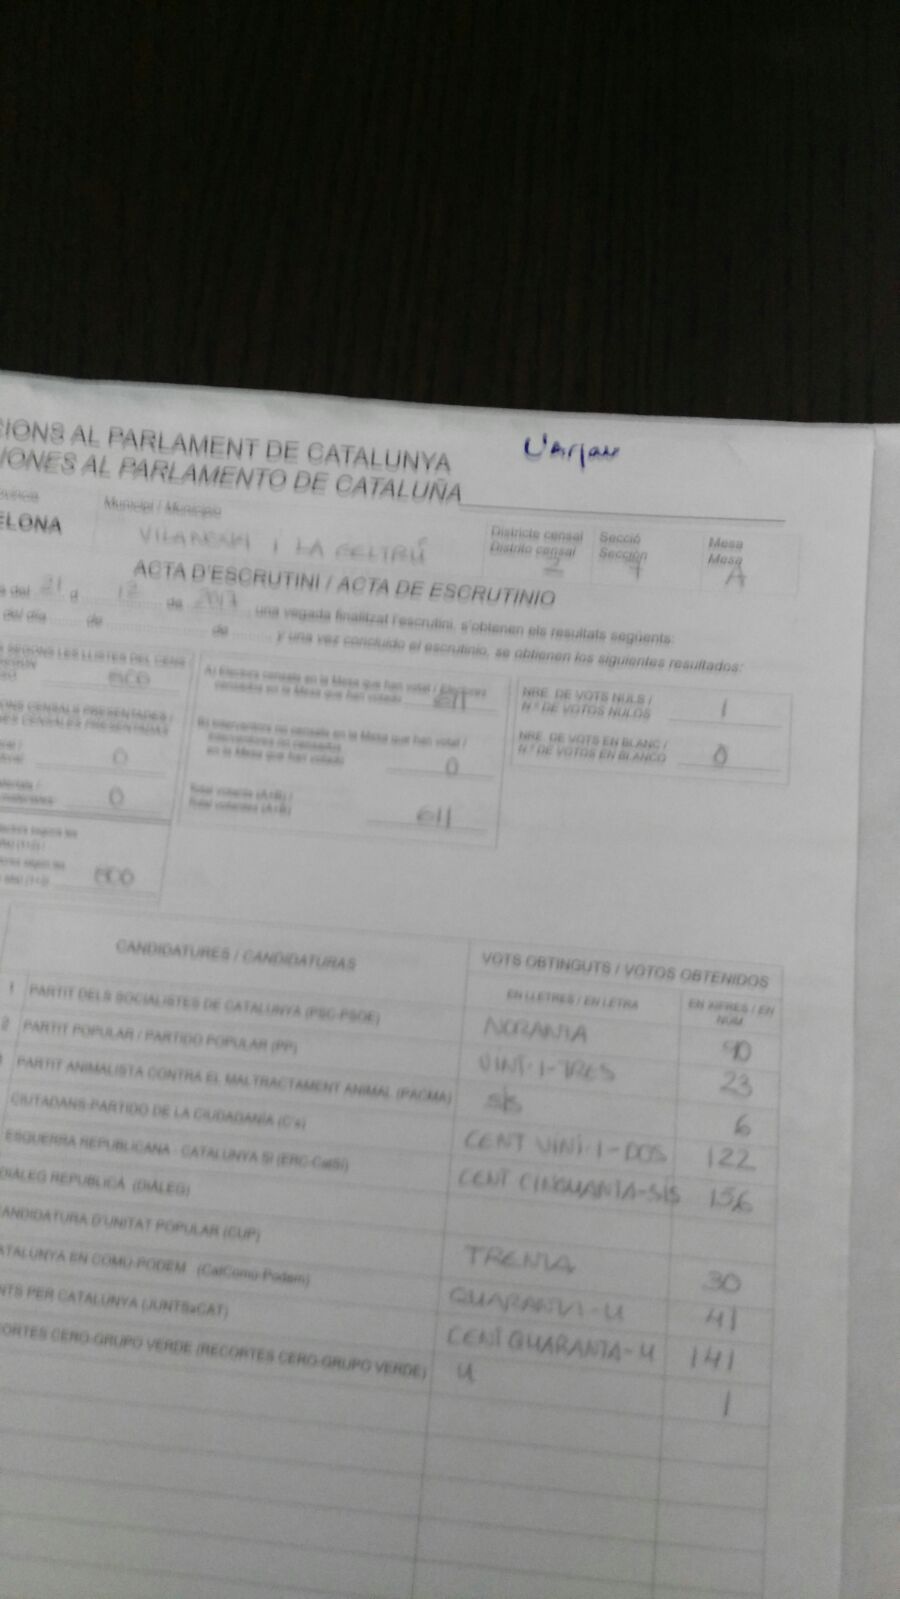 CIONS AL PARLAMENT DE CATALUNYA
IONES AL PARLAMENTO DE CATALUÑA
ELONA
Municipi / Municipio
VILANOVA I LA GELTRÚ
Districte censal Secció Mesa
Distrito censal Sección Mesa
2 A
ACTA D'ESCRUTINI / ACTA DE ESCRUTINIO
del 21 d 12 de 2017 una vegada finalitzat l'escrutini, s'obtenen els resultats següents:
del día de de y una vez concluido el escrutinio, se obtienen los siguientes resultados:
SEGONS LES LLISTES DEL CENS
A) Electors censats en la Mesa que han votat / Electores
censados en la Mesa que han votado 611
NRE. DE VOTS NULS /
N.º DE VOTOS NULOS 1
CENSALS PRESENTADES /
CENSALES PRESENTADAS
0
0
B) Interventors no censats en la Mesa que han votat /
Interventores no censados
en la Mesa que han votado 0
NRE. DE VOTS EN BLANC /
N.º DE VOTOS EN BLANCO 0
Total votants (A+B) /
Total votantes (A+B) 611
CANDIDATURES / CANDIDATURAS VOTS OBTINGUTS / VOTOS OBTENIDOS
EN LLETRES / EN LETRA EN XIFRES / EN NÚM
1 PARTIT DELS SOCIALISTES DE CATALUNYA (PSC-PSOE) NORANTA 90
2 PARTIT POPULAR / PARTIDO POPULAR (PP) VINT-I-TRES 23
PARTIT ANIMALISTA CONTRA EL MALTRACTAMENT ANIMAL (PACMA) SIS 6
CIUTADANS-PARTIDO DE LA CIUDADANÍA (C's) CENT VINT-I-DOS 122
ESQUERRA REPUBLICANA - CATALUNYA SÍ (ERC-CatSí) CENT CINQUANTA-SIS 156
DIÀLEG REPUBLICÀ (DIÀLEG)
CANDIDATURA D'UNITAT POPULAR (CUP) TRENTA 30
ATALUNYA EN COMÚ-PODEM (CatComú-Podem) QUARANTA-U 41
NTS PER CATALUNYA (JUNTSxCAT) CENT QUARANTA-U 141
CORTES CERO-GRUPO VERDE (RECORTES CERO-GRUPO VERDE) U 1